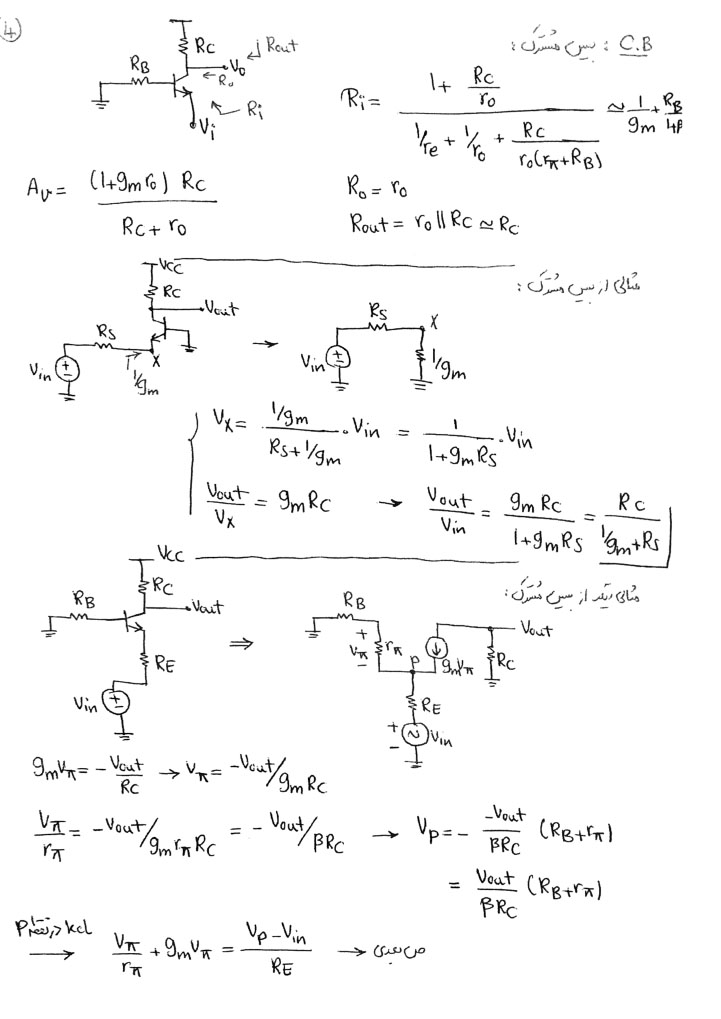 4
C.B : بیس مشترک :
RC
Vo
Rout
RB
Ro
Ri
Vi
Ri = (1 + RC/ro) / (1/re + 1/ro + RC/(ro(rπ+RB))) ≃ 1/gm + RB/1+β
Av = (1+gmro) RC / (RC + ro)
Ro = ro
Rout = ro || RC ≃ RC
مثالی از بیس مشترک :
VCC
RC
Vout
RS
Vin
X
1/gm
→
RS
X
Vin
1/gm
VX = (1/gm)/(RS+1/gm) . Vin = 1/(1+gmRS) . Vin
Vout/VX = gmRC → Vout/Vin = gmRC/(1+gmRS) = RC/(1/gm+RS)
مثالی دیگر از بیس مشترک :
VCC
RC
RB
Vout
RE
Vin
⇒
RB
+
Vπ
−
rπ
P
gmVπ
Vout
RC
RE
+
−
Vin
gmVπ = − Vout/RC → Vπ = −Vout/gmRC
Vπ/rπ = −Vout/gmrπRC = − Vout/βRC → VP = − −Vout/βRC (RB+rπ)
= Vout/βRC (RB+rπ)
kcl در نقطه P
→ Vπ/rπ + gmVπ = (VP − Vin)/RE → ص بعدی